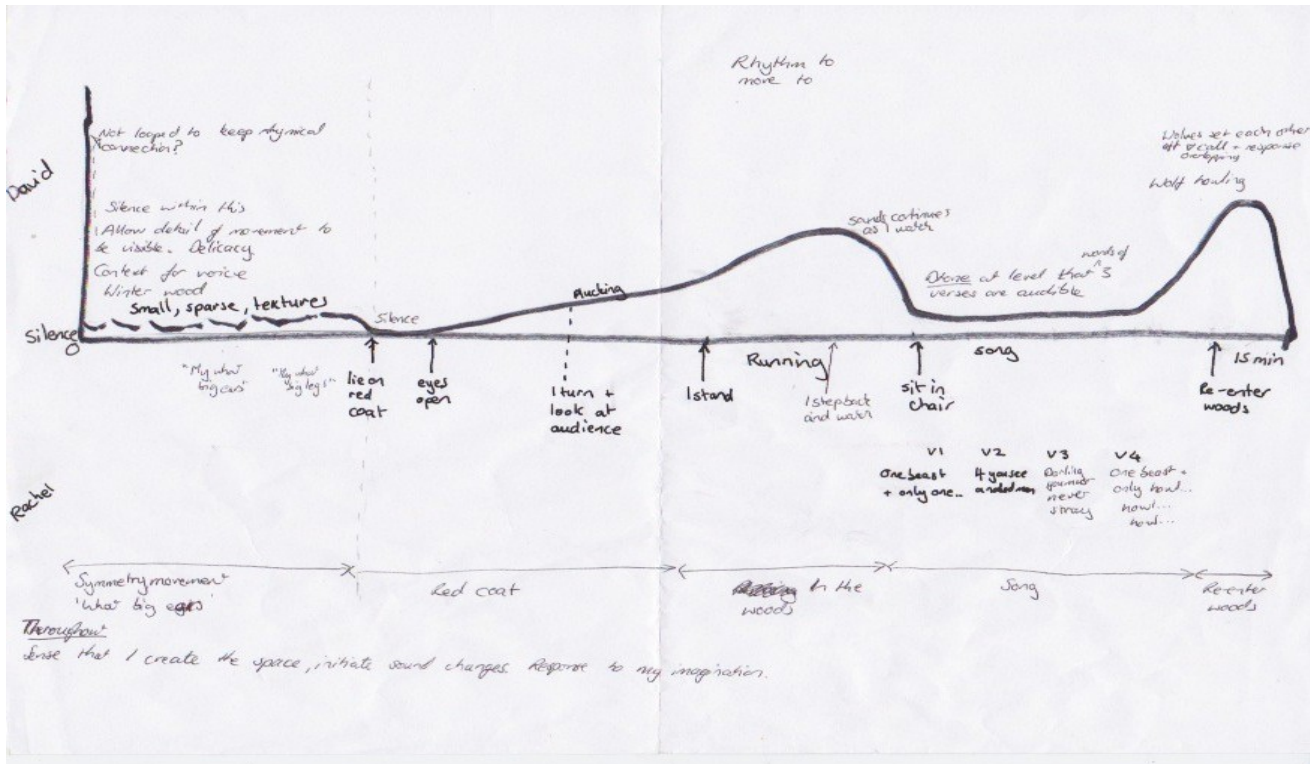 Rhythm to
move to
David
Not looped to keep rhymical
connection?
Silence within this
Allow detail of movement to
be visible. Delicacy
Context for voice
Winter wood
Small, sparse, textures
Silence
Silence
Plucking
sounds continues
as I watch
words of
Drone at level that 3
verses are audible
Wolves set each other
off call + response
overlapping
Wolf howling
"My what
big ears"
"My what
big legs"
lie on
red
coat
eyes
open
I turn +
look at
audience
I stand
Running
I step back
and watch
sit in
chair
song
Re-enter
woods
15 min
V1
One beast
+ only one...
V2
4 you see
V3
Darling
you must
never
stray
V4
One beast +
only howl...
howl...
howl...
Rachel
Symmetry movement
'What big
Red coat
In the
woods
Song
Re-enter
woods
Throughout
Sense that I create the space, initiate sound changes. Response to my imagination.